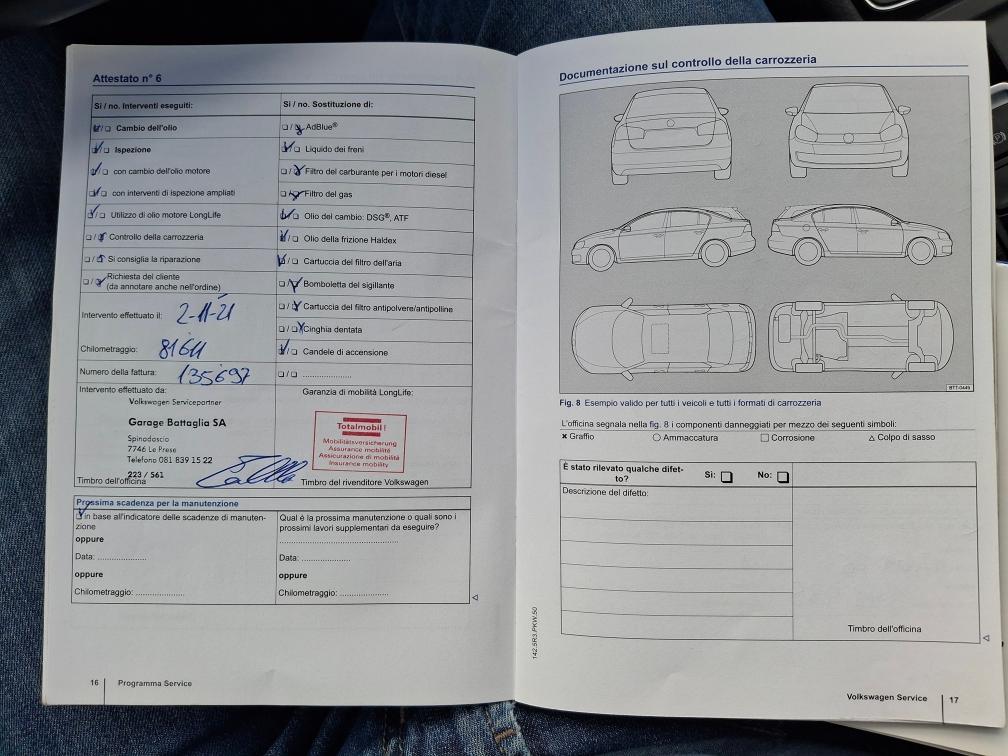 Attestato n° 6
Si / no. Interventi eseguiti:
Cambio dell'olio
Ispezione
con cambio dell'olio motore
con interventi di ispezione ampliati
Utilizzo di olio motore LongLife
Controllo della carrozzeria
Si consiglia la riparazione
Richiesta del cliente
(da annotare anche nell'ordine)
Intervento effettuato il: 2-11-21
Chilometraggio: 81611
Numero della fattura: 135697
Intervento effettuato da:
Volkswagen Servicepartner
Garage Battaglia SA
Spinadascio
7746 Le Prese
Telefono 081 839 15 22
223 / 561
Timbro dell'officina
Si / no. Sostituzione di:
AdBlue®
Liquido dei freni
Filtro del carburante per i motori diesel
Filtro del gas
Olio del cambio: DSG®, ATF
Olio della frizione Haldex
Cartuccia del filtro dell'aria
Bomboletta del sigillante
Cartuccia del filtro antipolvere/antipolline
Cinghia dentata
Candele di accensione
Garanzia di mobilità LongLife:
Totalmobil!
Mobilitätsversicherung
Assurance mobilité
Assicurazione di mobilità
Insurance mobility
Timbro del rivenditore Volkswagen
Prossima scadenza per la manutenzione
in base all'indicatore delle scadenze di manuten-
zione
oppure
Data: ....................
oppure
Chilometraggio: ....................
Qual é la prossima manutenzione o quali sono i
prossimi lavori supplementari da eseguire?
Data: ....................
oppure
Chilometraggio: ....................
16 Programma Service
Documentazione sul controllo della carrozzeria
BTT-0449
Fig. 8 Esempio valido per tutti i veicoli e tutti i formati di carrozzeria
L'officina segnala nella fig. 8 i componenti danneggiati per mezzo dei seguenti simboli:
Graffio Ammaccatura Corrosione Colpo di sasso
È stato rilevato qualche difet-
to?
Sì: No:
Descrizione del difetto:
Timbro dell'officina
142.5R3.PKW.50
Volkswagen Service 17